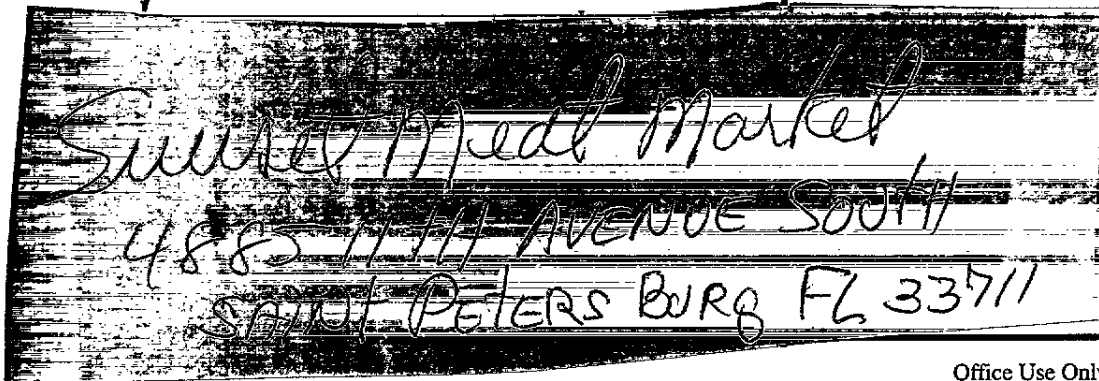 Sunset Meat Market
4885 11TH AVENUE SOUTH
SAINT PETERS BURG FL 33711
Office Use Only